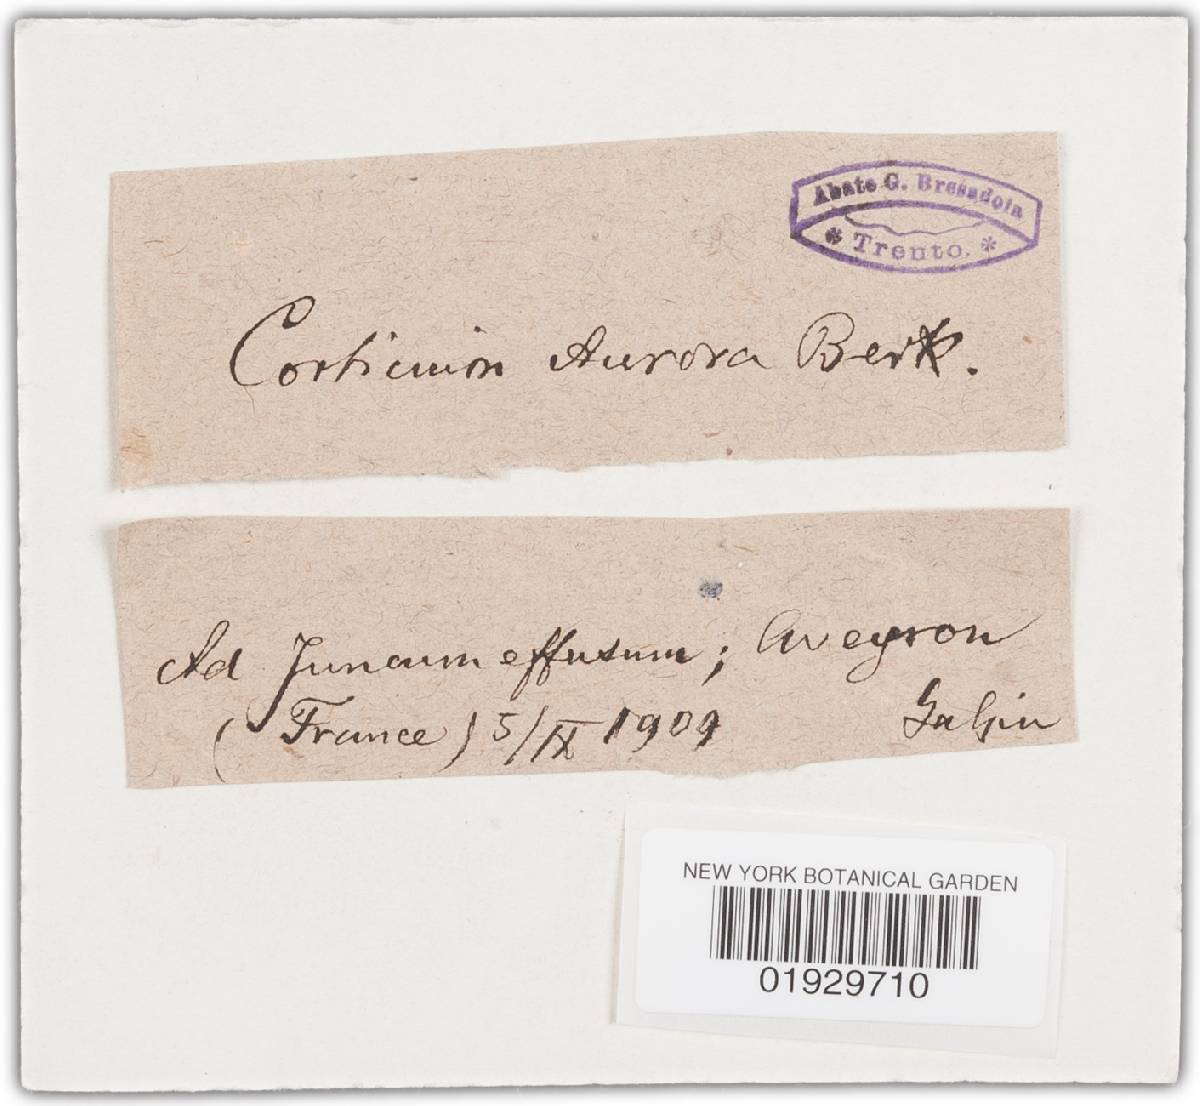 Abate G. Bresadola
* Trento. *
Corticium Aurora Berk.
Ad Juncum effusum; Aveyron
(France) 5/IX 1909
Galzin
NEW YORK BOTANICAL GARDEN
01929710